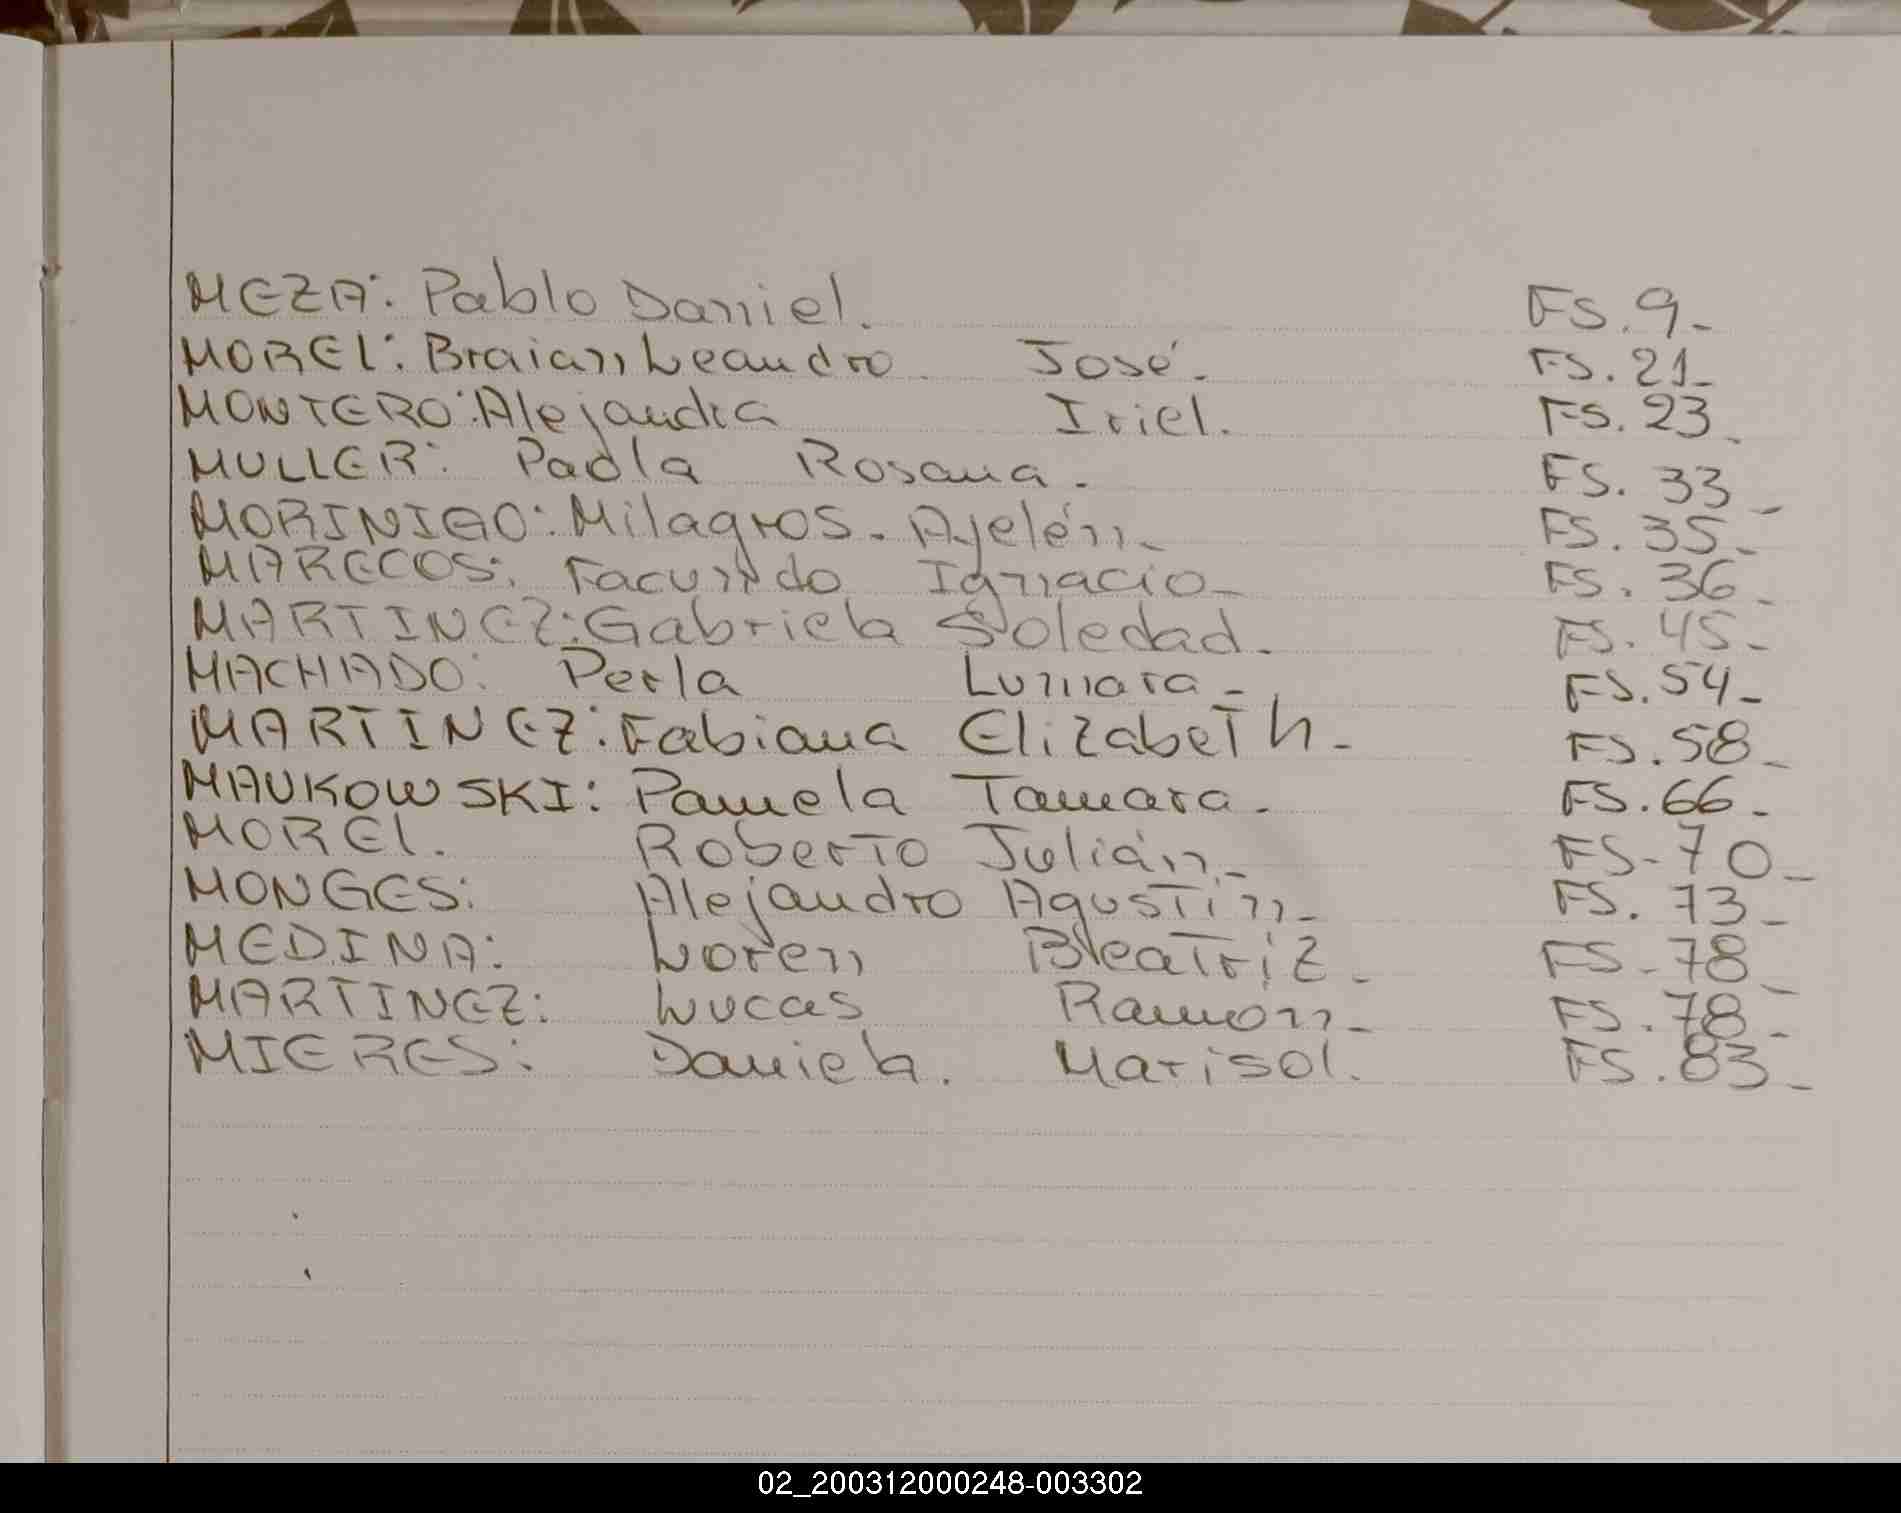 MEZA: Pablo Daniel. FS. 9-
MOREL: Braian Leandro José. FS. 21-
MONTERO: Alejandra Iriel. FS. 23-
MULLER: Paola Rosana. FS. 33-
MORINIGO: Milagros. Ayelén- FS. 35-
MARECOS: Facundo Ignacio- FS. 36-
MARTINEZ: Gabriela Soledad. FS. 45-
MACHADO: Perla Lumara- FS. 54-
MARTINEZ: Fabiana ElizabeTh- FS. 58-
MAUKOWSKI: Pamela Tamara- FS. 66-
MOREL. RoberTo Julián- FS-70-
MONGES: Alejandro AgusTin- FS. 73-
MEDINA: Loren BeaTriz- FS-78-
MARTINEZ: Lucas Ramón- FS. 78-
MIERES: Daniela. Marisol. FS. 83-
02_200312000248-003302